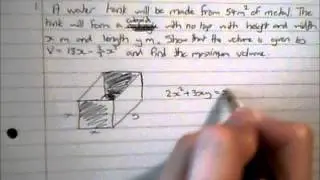 1. A water tank will be made from 54m² of metal. The
tank will form a cuboid with no top with height and width
x m and length y m. Show that the volume is given by
V = 18x - ⅔x³ and find the maximum volume.
2x² + 3xy =
x
y